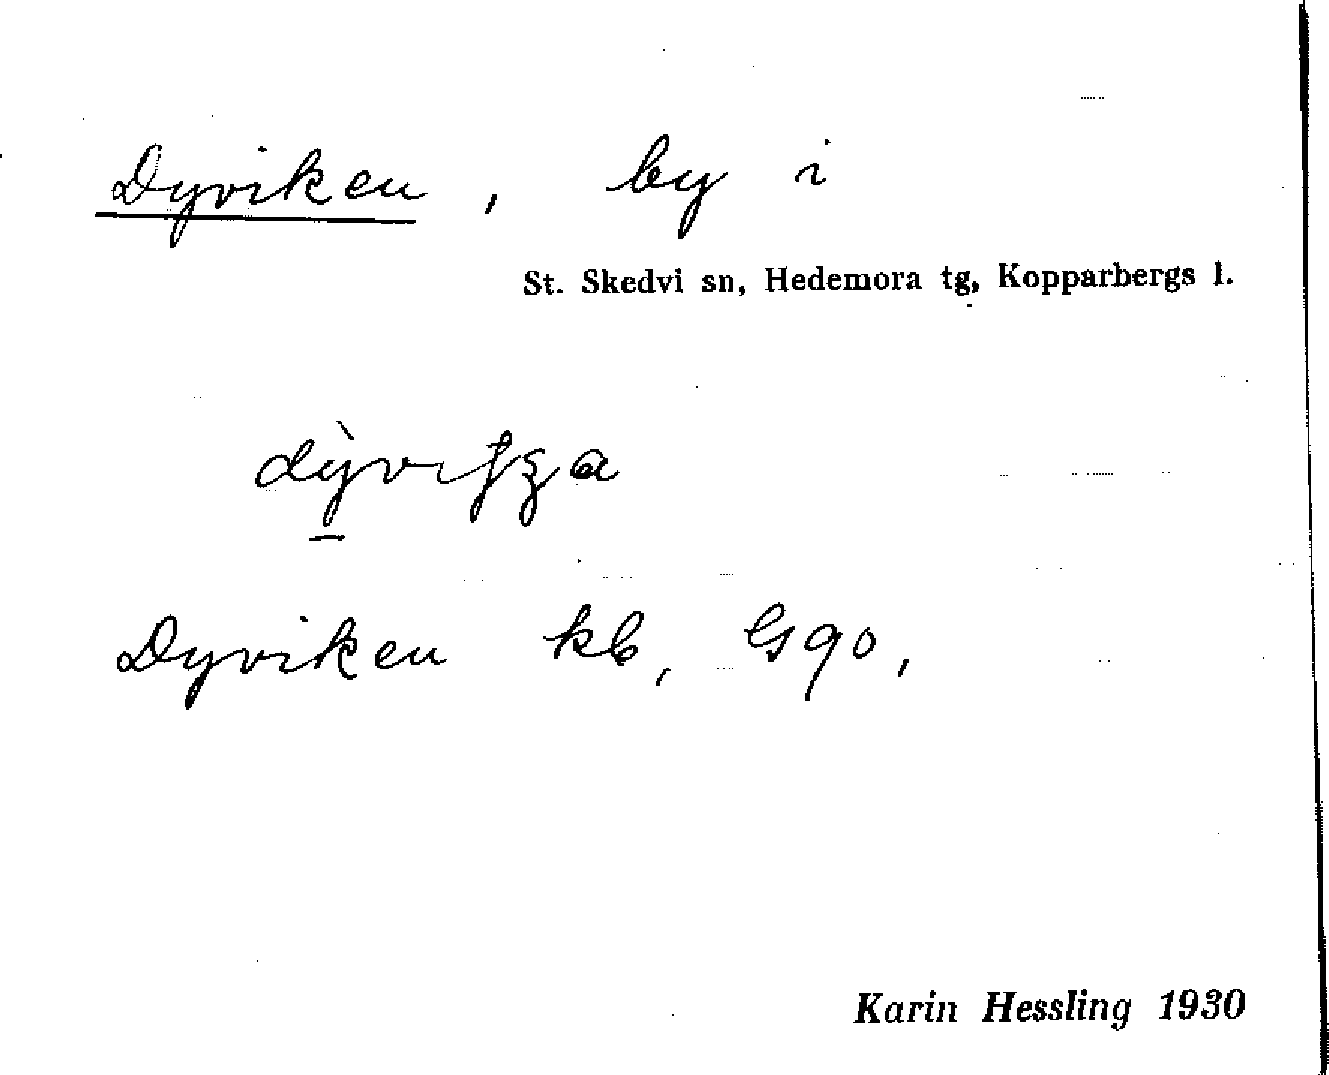 Dyviken, by i
St. Skedvi sn, Hedemora tg, Kopparbergs l.
Dyviken kb,
Karin Hessling 1930